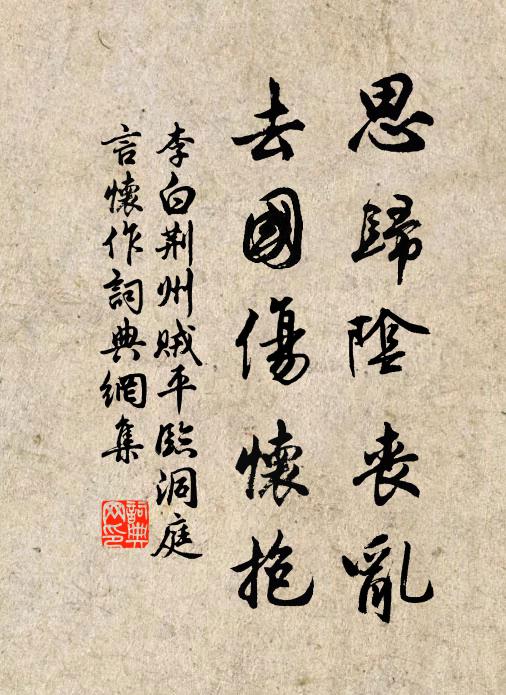 思歸陰喪亂
去國傷懷抱
李白荆州賊平臨洞庭
言懷作詞典網集
詞典
網印